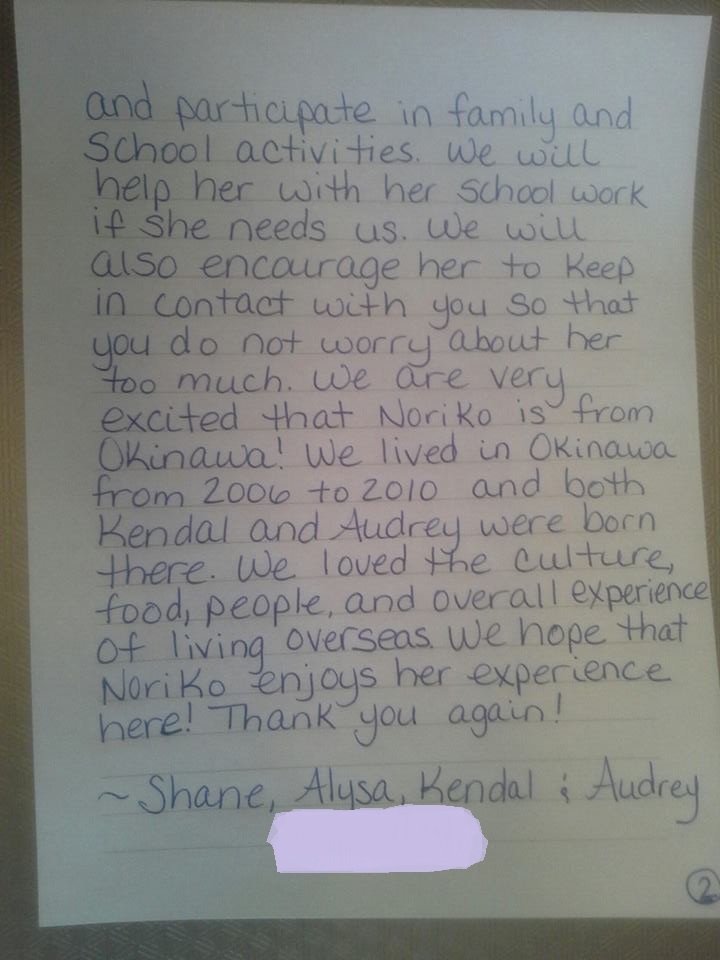 and participate in family and
School activities. We will
help her with her school work
if she needs us. We will
also encourage her to keep
in contact with you so that
you do not worry about her
too much. We are very
excited that Noriko is from
Okinawa! We lived in Okinawa
from 2006 to 2010 and both
Kendal and Audrey were born
there. We loved the culture,
food, people, and overall experience
of living overseas. We hope that
Noriko enjoys her experience
here! Thank you again!
~ Shane, Alysa, Kendal & Audrey
2